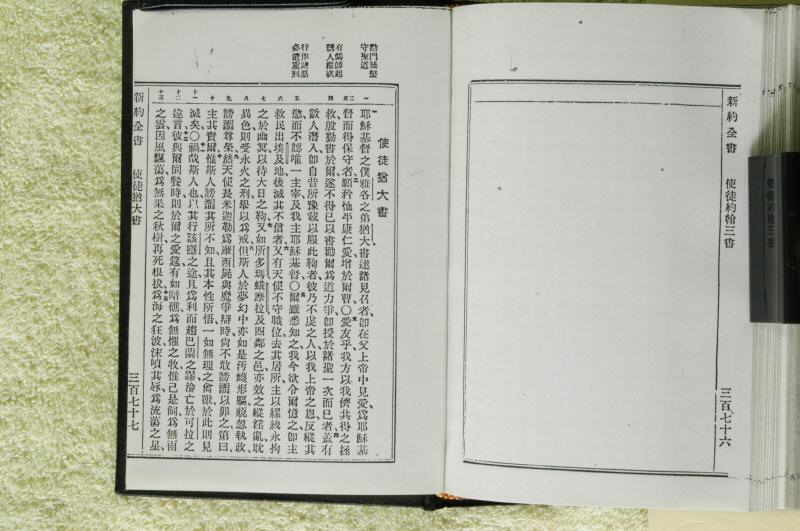 新約全書　使徒約翰三書　三百七十六
使徒約翰三書
勸門徒堅
守聖道
有僞師起
誘人縱欲
行作諸惡
必遭重刑
使徒猶大書
耶穌基督之僕雅各之弟猶大書達諸見召者卽在父上帝中見愛爲耶穌基
督而得保守者願矜恤平康仁愛增於爾曹〇愛友乎我方以我儕共得之拯
救殷勤書於爾遂不得已以書勸爾爲道力爭卽授於諸聖一次而已者蓋有
數人潛入卽自昔所豫載以服此鞫者彼乃不虔之人以我上帝之恩反縱其
慾而不認唯一主宰及我主耶穌基督〇爾雖悉知之我今欲令爾憶之卽主
救民出埃及地後滅其不信者又有天使不守職位去其居所主以縲絏永拘
之於幽冥以待大日之鞫又如所多瑪蛾摩拉及四鄰之邑亦效之縱淫亂耽
異色則受永火之刑舉以爲戒但斯人於夢幻中亦如是污衊形軀藐忽執政
謗讟尊榮然天使長米迦勒爲摩西屍與魔爭辯時尙不敢謗讟以罪之第曰
主其責爾惟斯人謗讟其所不知且其本性所悟一如無理之禽獸於此則見
滅矣〇禍哉斯人也以其行該隱之途且爲利而趨巴蘭之謬淪亡於可拉之
違言彼與爾同餐時則於爾之愛筵有如暗礁爲無懼之牧惟己是飼爲無雨
之雲因風飄蕩爲無果之秋樹再死根拔爲海之狂波沫噴其辱爲流蕩之星
新約全書　使徒猶大書　三百七十七